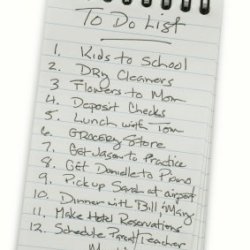 To Do List
1. Kids to School
2. Dry Cleaners
3. Flowers to Mom
4. Deposit Checks
5. Lunch with Tom
6. Grocery Store
7. Get Jason to Practice
8. Get Danielle to Piano
9. Pick up Sarah at airport
10. Dinner with Bill & Mary
11. Make Hotel Reservations
12. Schedule Parent/Teacher